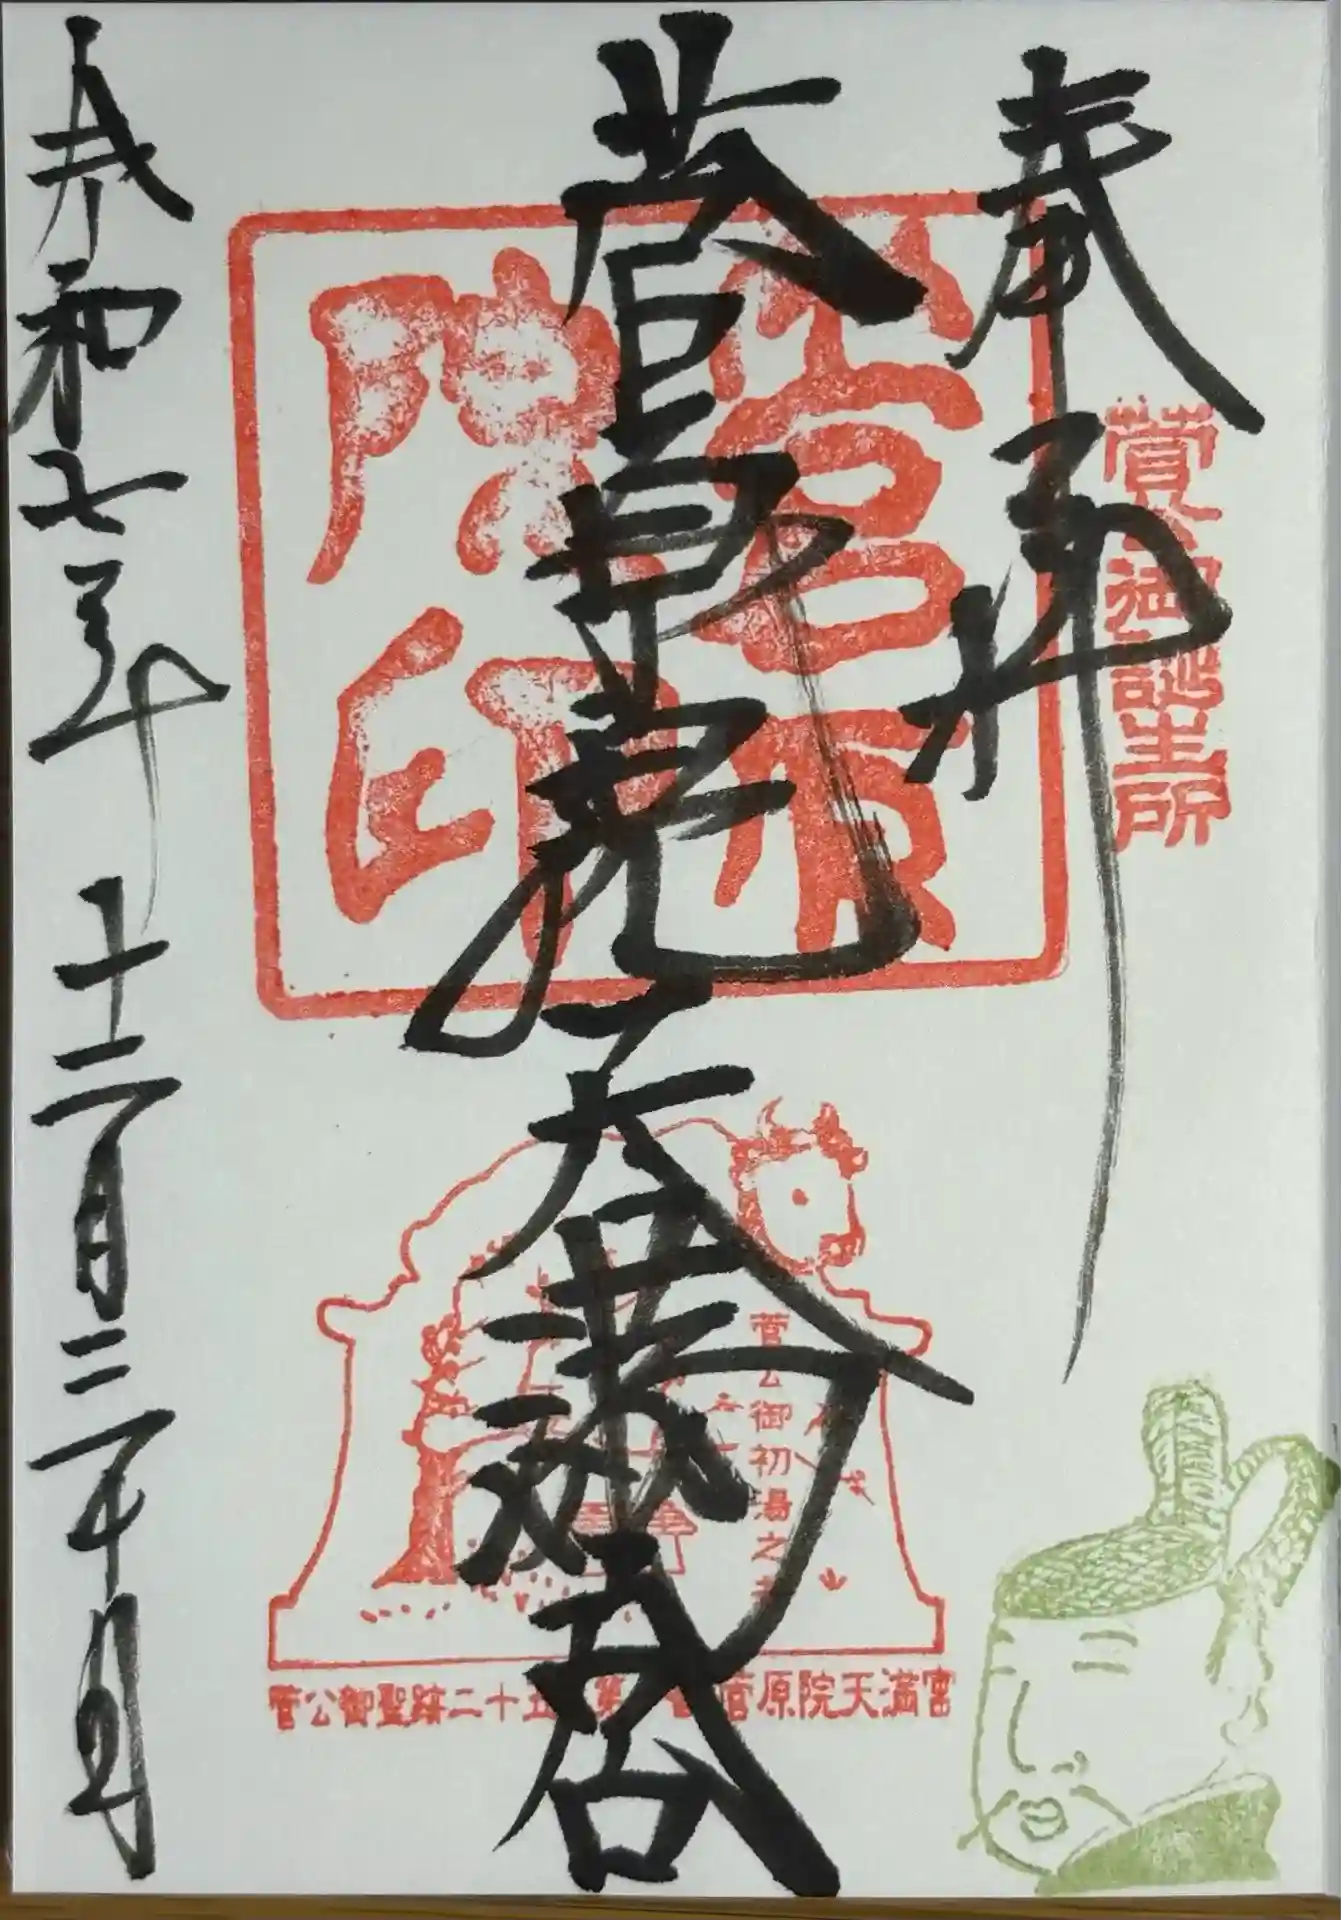 奉拝
菅公御誕生所
菅原院天満宮
菅原院印
菅公御初湯之井
菅公御聖蹟二十五 第一番 菅原院天満宮
令和七年十二月二十日